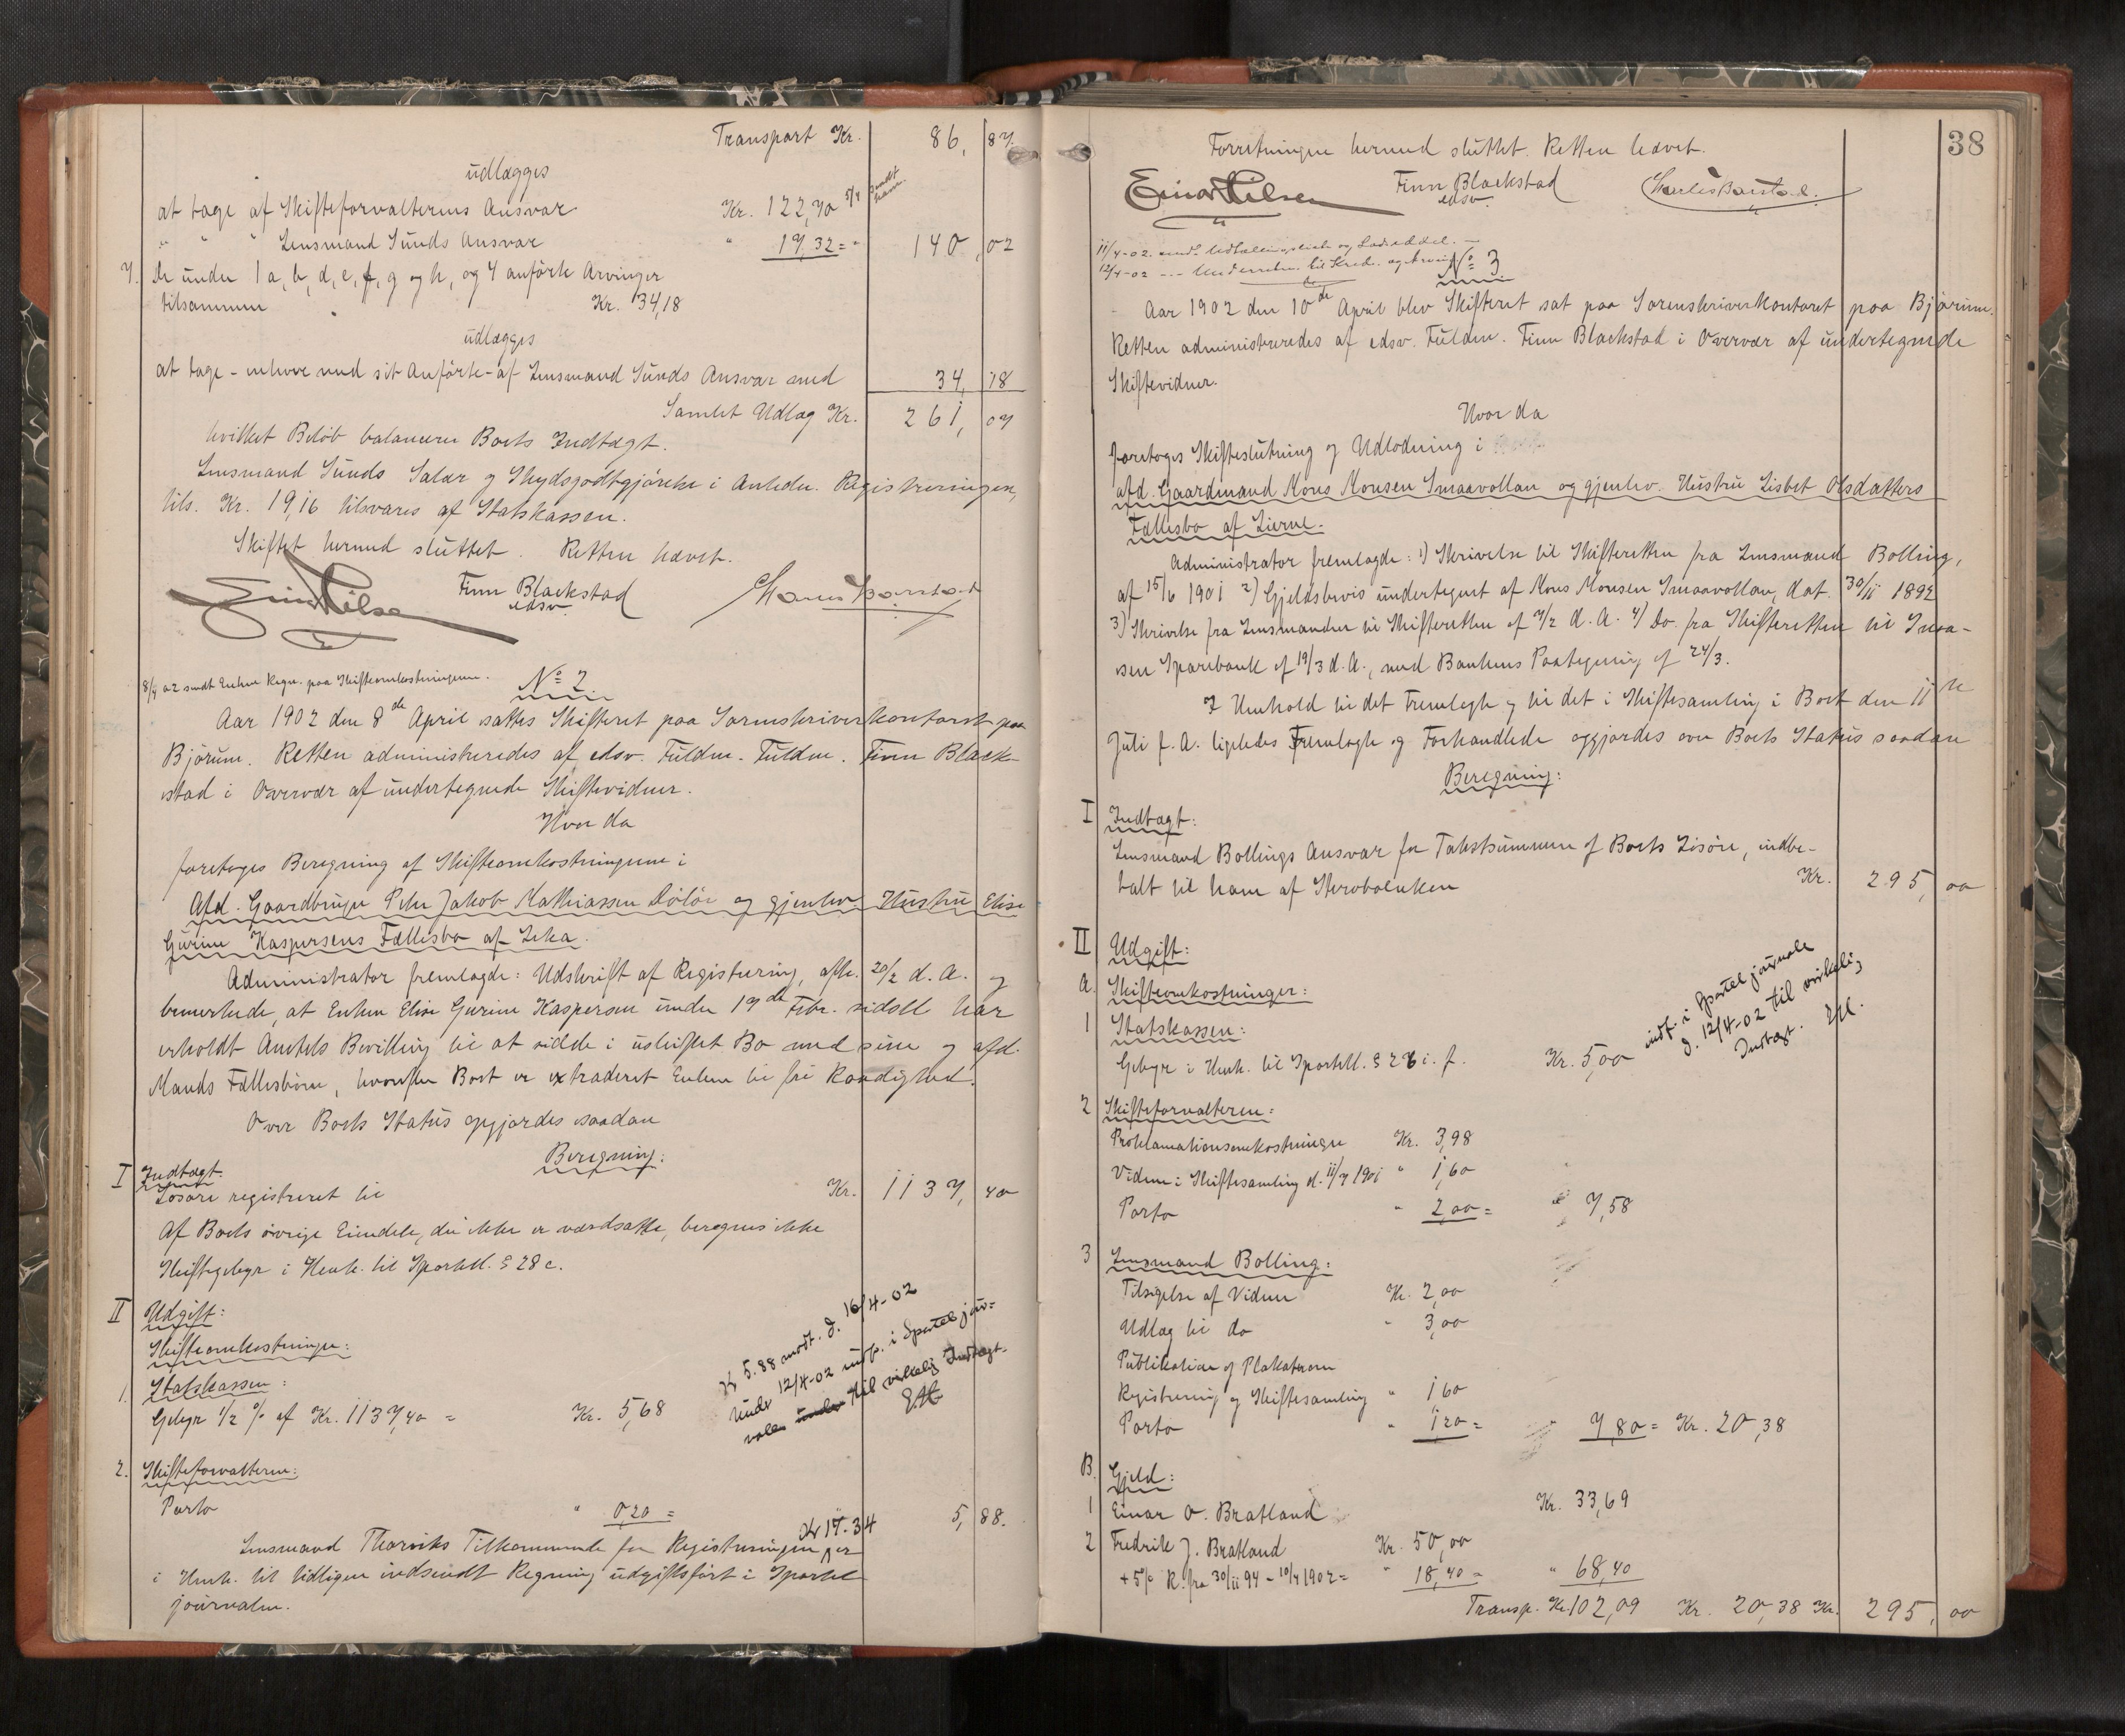 Transport Kr. 86, 87.
udlægges
at tage af Skifteforvalterens Ansvar Kr. 122,70 5/4 sendt ham.
" " " Lensmand Sunds Ansvar " 17,32 = " 140,02
7. De under 1 a, b, d, e, f, g og h, og 4 anförte Arvinger
tilsammen Kr. 34,18
udlægges
at tage - enhver med sit Anförte - af Lensmand Sunds Ansvar med 34, 18
Samlet Udlæg Kr. 261, 07
hvilket Belöb balancerer Boets Indtægt.
Lensmand Sunds Salær og Skydsgodtgjörelse i Anledn. Registreringen,
tils. Kr. 19,16 tilsvares af Statskassen.
Skiftet hermed sluttet. Retten hævet.
Einar Nilsen Finn Blackstad
edsv.
8/4 02 sendt Enken Regn. paa Skifteomkostningerne.
No 2
Aar 1902 den 8de April sattes Skifteret paa Sorenskriverkontoret paa
Bjørum. Retten administreredes af edsv. Fuldm. Fuldm. Finn Black-
stad i Overvær af undertegnede Skiftevidner.
Hvor da
foretoges Beregning af Skifteomkostningerne i
Afd. Gaardbruger Peter Jakob Mathiassen Dölöe og gjenlev. Hustru Elise
Gurine Kaspersens Fællesbo af Leka.
Administrator fremlagde: Udskrift af Registrering, afh. 20/2 d. A. og
bemærkede, at Enken Elise Gurine Kaspersen under 19de Febr. sidstl har
erholdt Amtets Bevilling til at sidde i uskiftet Bo med sine og afd.
Mands Fællesbörn, hvorefter Boet er extraderet Enken til fri Raadighed.
Over Boets Status opgjordes saadan
Beregning:
I Indtægt.
Lösöre registreret til Kr. 1137, 40
Af Boets övrige Eiendele, der ikke er værdsatte, beregnes ikke
Skiftegebyr i Henh. til Sportell. § 28 c.
II Udgift:
Skifteomkostninger:
1. Statskassen:
Gebyr 1/2 % af Kr. 1137,40 = Kr. 5,68
Kr 5.88 modt. d. 16/4-02
under 12/4-02 indf. i Sportel jour=
nalen under til virkelig Indtægt.
2. Skifteforvalteren:
Porto " 0,20 = 5, 88.
Kr 17-34
Lensmand Thorviks Tilkommende for Registreringen er
i Henh. til tidligere indsendt Regning udgiftsfört i Sportel
journalen.
38
Forretningen hermed sluttet. Retten hævet.
Einar Nilsen Finn Blackstad
edsv.
11/4-02 sendt Udtalingsliste og Lodseddel. -
12/4-02 --- Underretn. til Kred. og Arving
No 3
Aar 1902 den 10de April blev Skifteret sat paa Sorenskriverkontoret paa Bjørum.
Retten administreredes af edsv. Fuldm. Finn Blackstad i Overvær af undertegnede
Skiftevidner.
Hvor da
foretoges Skifteslutning og Udlodning i
afd. Gaardmand Mons Monsen Smaavollan og gjenlev. Hustru Lisbet Olsdatters
Fællesbo af Lierne.
Administrator fremlagde: 1) Skrivelse til Skifteretten fra Lensmand Bolling,
af 15/6 1901 2) Gjeldsbevis undertegnet af Mons Monsen Smaavollan, dat. 30/11 1894
3) Skrivelse fra Lensmanden til Skifteretten af 7/2 d. A. 4) Do. fra Skifteretten til Snaa-
sen Sparebank af 19/3 d. A., med Bankens Paategning af 24/3.
I Henhold til det Fremlagte og til det i Skiftesamling i Boet den 11te
Juli f. A. ligeledes Fremlagte og Forhandlede opgjordes over Boets Status saadan
Beregning:
I Indtægt:
Lensmand Bollings Ansvar for Takstsummen af Boets Lösöre, indbe-
talt til ham af Skrobolnken Kr. 295, 00
II Udgift:
A. Skifteomkostninger:
1 Statskassen:
Gebyr i Henh. til Sportell. § 28 i. f. Kr. 5,00
indf. i Sportel journale
d. 12/4-02 til virkelig
Indtægt.
2 Skifteforvalteren:
Proklamationsomkostninger Kr. 3,98
Vidner i Skiftesamling d. 11/7 1901 " 1,60
Porto " 2,00 = " 7,58
3 Lensmand Bolling:
Tilsigelse af Vidner Kr. 2,00
Udlæg til do " 3,00
Publikation af Plakaterom
Registrering og Skiftesamling " 1 60
Porto " 1,20 = " 7,80 = Kr. 20,38
B. Gjeld:
1 Einar O. Bratland Kr. 33,69
2 Fredrik J. Bratland Kr. 50,00
+ 5% R. fra 30/11 94 - 10/4 1902 = " 18,40 = " 68,40
Transp. Kr. 102,09 Kr. 20,38 Kr. 295, 00